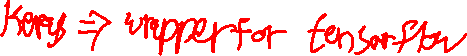 Keras => wrapper for tensorflow